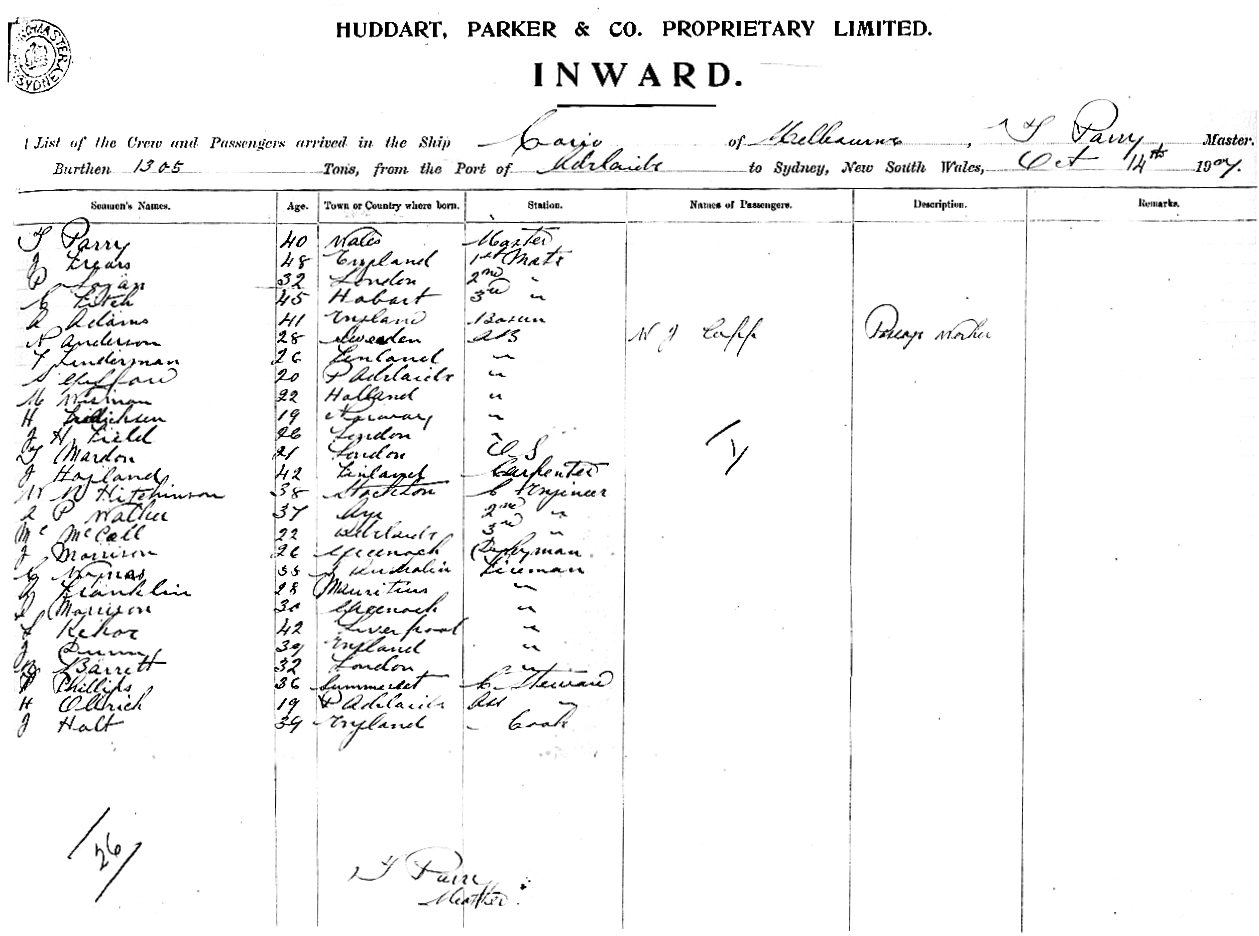 HUDDART, PARKER & CO. PROPRIETARY LIMITED.
INWARD.
List of the Crew and Passengers arrived in the Ship Corio of Melbourne, T Parry Master.
Burthen 1305 Tons, from the Port of Adelaide to Sydney, New South Wales, Oct 14th 1907.
Seamen's Names. Age. Town or Country where born. Station. Names of Passengers. Description. Remarks.
T Parry 40 Wales Master
J Frears 48 England 1st Mate
P Logan 32 London 2nd "
C Fitch 45 Hobart 3rd "
A Adams 41 England Bosun
N Anderson 28 Sweden AB W J Passage Worker
T Linderman 26 Finland "
S Gifford 20 P Adelaide "
M Wisman 22 Holland "
H 19 Norway "
J H Field 26 London "
Mardon 21 London OS
J Hoiland 42 Finland Carpenter
W N Hitchinson 38 Stockton C Engineer
P Walker 37 Ayr 2nd "
Mc McCall 22 Adelaide 3rd "
J Morrison 26 Greenock Donkeyman
35 S Australia Fireman
Franklin 28 Mauritius "
Morrison 30 Greenock "
Kehoe 42 Liverpool "
J Quinn 39 England "
Barrett 32 London "
Phillips 36 Summerset C Steward
H Ollrich 19 P Adelaide Ass "
J Holt 39 England Cook
1
26
T Parry
Master